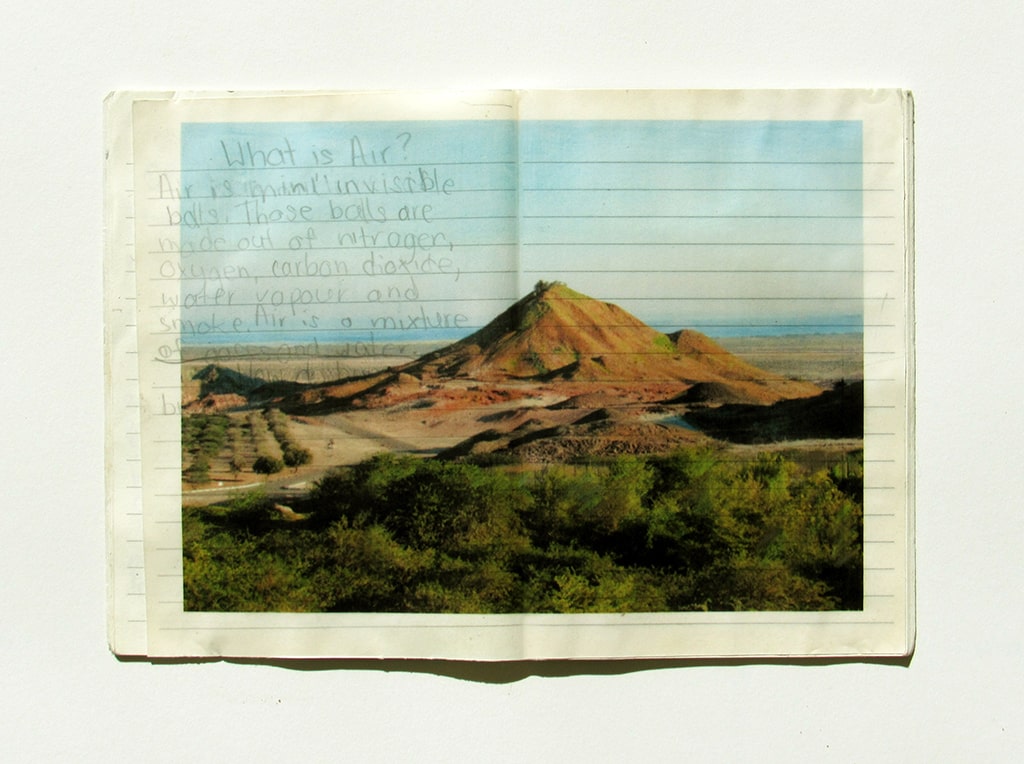 What is Air?
Air is invisible
balls. Those balls are
made out of nitrogen,
oxygen, carbon dioxide,
water vapour and
smoke. Air is a mixture
of and water